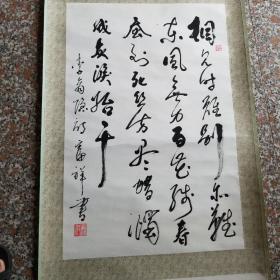 相见时难别亦难
东风无力百花残春
蚕到死丝方尽蜡炬
成灰泪始干
李商隐诗 书